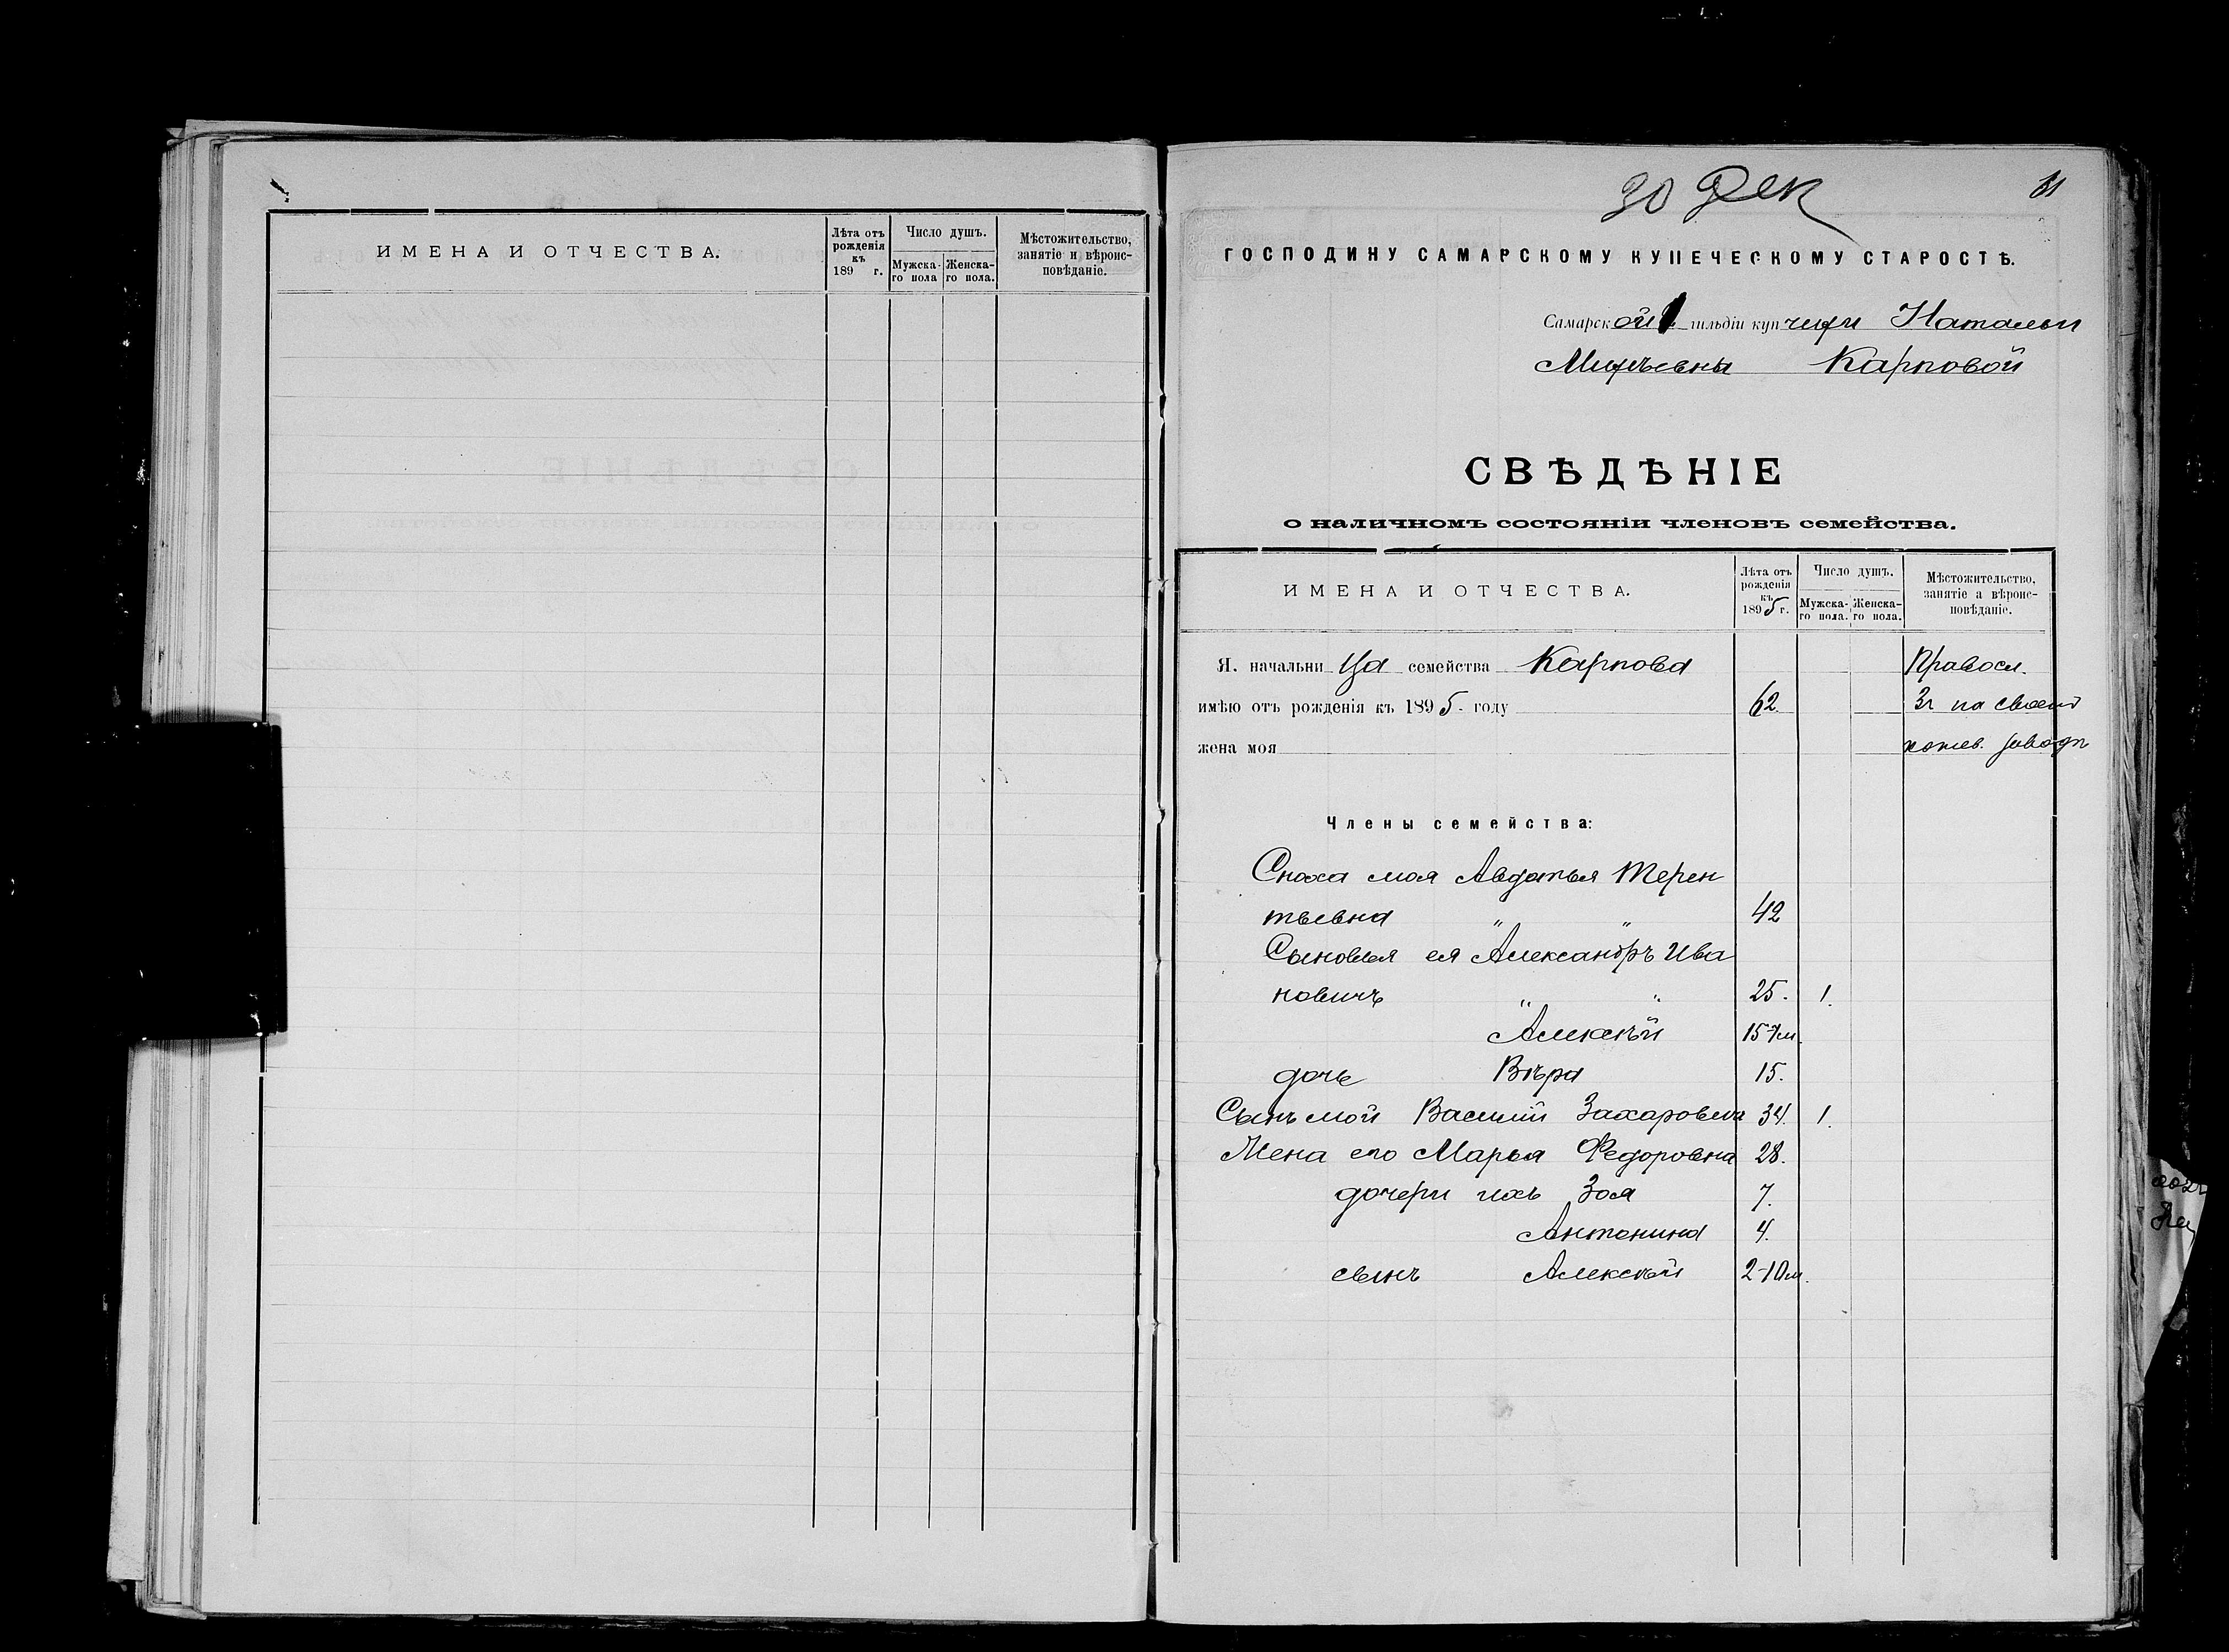 ИМЕНА И ОТЧЕСТВА.
Лѣта отъ рожденія къ 189 г.
Число душъ.
Мужска-го пола
Женска-го пола.
Мѣстожительство, занятіе и вѣроис-повѣданіе.
30 Дек
ГОСПОДИНУ САМАРСКОМУ КУПЕЧЕСКОМУ СТАРОСТѢ.
Самарской гильдіи купчихи Натальи
Карповой
СВѢДѢНІЕ
о наличномъ состояніи членовъ семейства.
ИМЕНА И ОТЧЕСТВА.
Лѣта отъ рожденія къ 1895 г.
Число душъ.
Мужска-го пола.
Женска-го пола.
Мѣстожительство, занятіе а вѣроис-повѣданіе.
Я. начальница семейства Карпова Правосл.
имѣю отъ рожденія къ 1895. году 62. на своемъ
жена моя заводѣ
Члены семейства:
Сноха моя Авдотья Терен
тьевна " " 42
Сыновья ея Александръ Ива
новичъ " " 25. 1.
Алексѣй 15-7м.
дочь Вѣра 15.
Сынъ мой Василій Захаровичъ 34. 1.
Жена его Марья Федоровна 28.
дочери ихъ Зоя 7.
Антонина 4.
сынъ Алексѣй 2-10м.